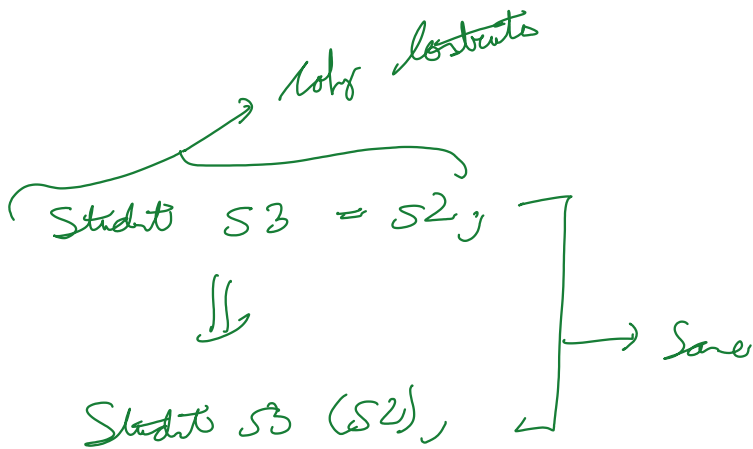 Copy Constructor
Student S3 = S2;
Student S3 (S2);
Same